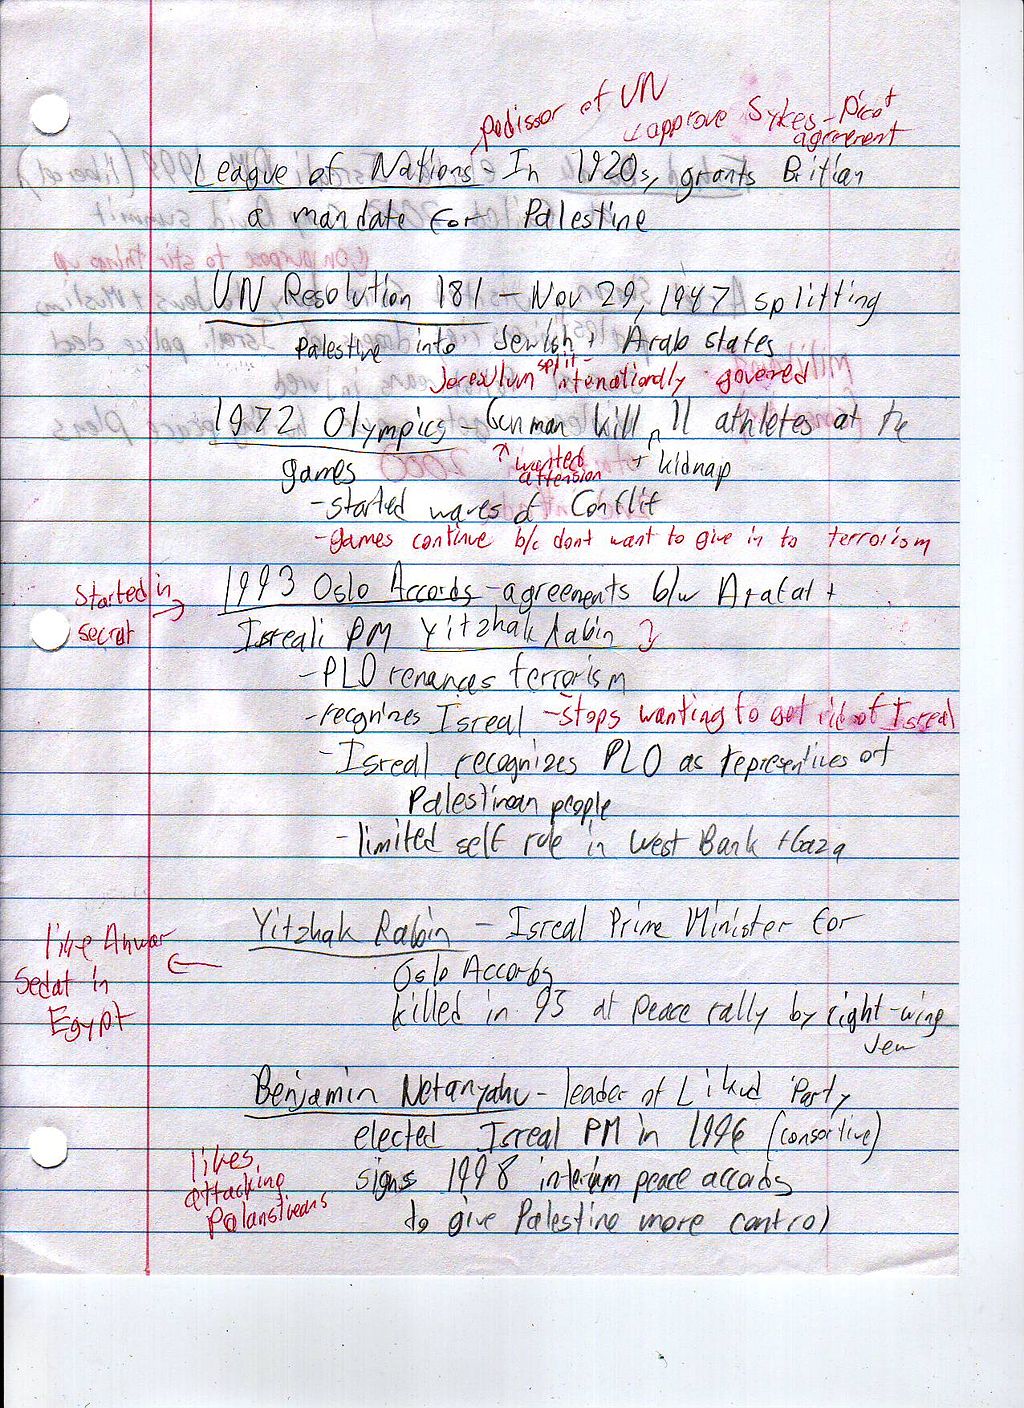 pedissor of UN
approve Sykes-Picot
agreement
League of Nations - In 1920s, grants Britian
a mandate for Palestine
UN Resolution 181 - Nov 29, 1947 splitting
Palestine into Jewish + Arab states
Jerexulum split - intenationally govered
1972 Olympics - Gunman kill 11 athletes at the
games ↑ wanted + kidnap
attension
- started waves of Conflit
- games continue b/c dont want to give in to terrorism
Started in
secrat
1993 Oslo Accords - agreements b/w Arafat +
Isreali PM Yitzhak Rabin
- PLO renances terrorism
- recgnizes Isreal - stops wanting to get rid of Isreal
- Isreal recognizes PLO as representives of
Palestinean people
- limited self rule in West Bank + Gaza
Yitzhak Rabin - Isreal Prime Minister for
Oslo Accords
killed in 95 at peace rally by right-wing
Jew
like Anwar
Sedat in
Egypt
Benjamin Netanyahu - leader of Likud Party
elected Isreal PM in 1996 (consortive)
signs 1998 interim peace accords
to give Palestine more control
likes
attacking
Palanstineans